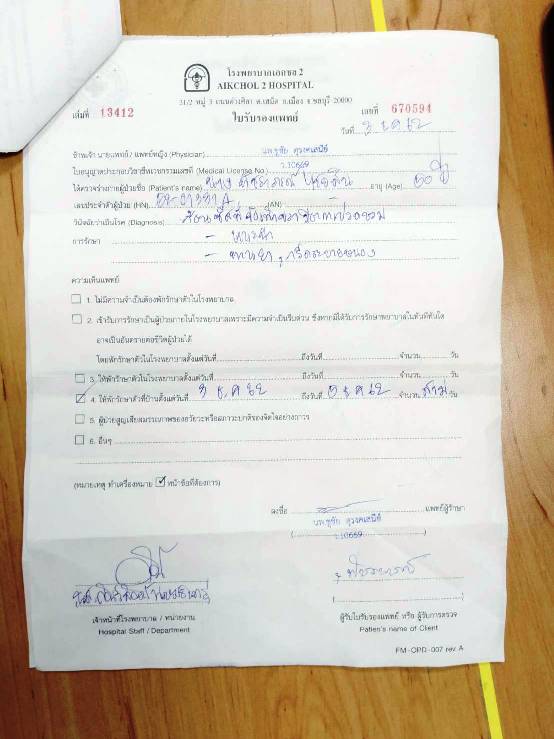 โรงพยาบาลเอกชล 2
AIKCHOL 2 HOSPITAL
31/2 หมู่ 3 ถนนอ่างศิลา ต.เสม็ด อ.เมือง จ.ชลบุรี 20000
เล่มที่ 13412 เลขที่ 670594
ใบรับรองแพทย์
วันที่ 3 ธ.ค 62
ข้าพเจ้า นายแพทย์ / แพทย์หญิง (Physician)
ใบอนุญาตประกอบวิชาชีพเวชกรรมเลขที่ (Medical License No.) ว.10669
ได้ตรวจร่างกายผู้ป่วยชื่อ (Patient's name) นาง อายุ (Age) 50 ปี
เลขประจำตัวผู้ป่วย (HN) (AN) -
วินิจฉัยว่าเป็นโรค (Diagnosis)
การรักษา -
- ทานยา
ความเห็นแพทย์
1. ไม่มีความจำเป็นต้องพักรักษาตัวในโรงพยาบาล
2. เข้ารับการรักษาเป็นผู้ป่วยภายในโรงพยาบาลเพราะมีความจำเป็นรีบด่วน ซึ่งหากมิได้รับการรักษาพยาบาลในทันทีทันใด
อาจเป็นอันตรายต่อชีวิตผู้ป่วยได้
โดยพักรักษาตัวในโรงพยาบาลตั้งแต่วันที่ ถึงวันที่ จำนวน วัน
3. ให้พักรักษาตัวในโรงพยาบาลตั้งแต่วันที่ ถึงวันที่ จำนวน วัน
4. ให้พักรักษาตัวที่บ้านตั้งแต่วันที่ 3 ธ.ค 62 ถึงวันที่ ธ.ค 62 จำนวน สาม วัน
5. ผู้ป่วยสูญเสียสมรรถภาพของอวัยวะหรือสภาวะปกติของจิตใจอย่างถาวร
6. อื่นๆ
(หมายเหตุ ทำเครื่องหมาย ☑ หน้าข้อที่ต้องการ)
ลงชื่อ แพทย์ผู้รักษา
ว.10669
เจ้าหน้าที่โรงพยาบาล / หน่วยงาน
Hospital Staff / Department
ผู้รับใบรับรองแพทย์ หรือ ผู้รับการตรวจ
Patien's name of Client
FM-OPD-007 rev. A